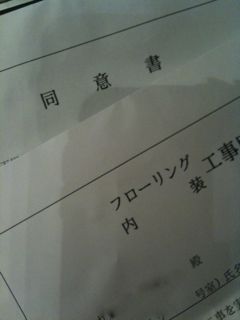 同意書
フローリング
内装
工事
殿
号室)氏名